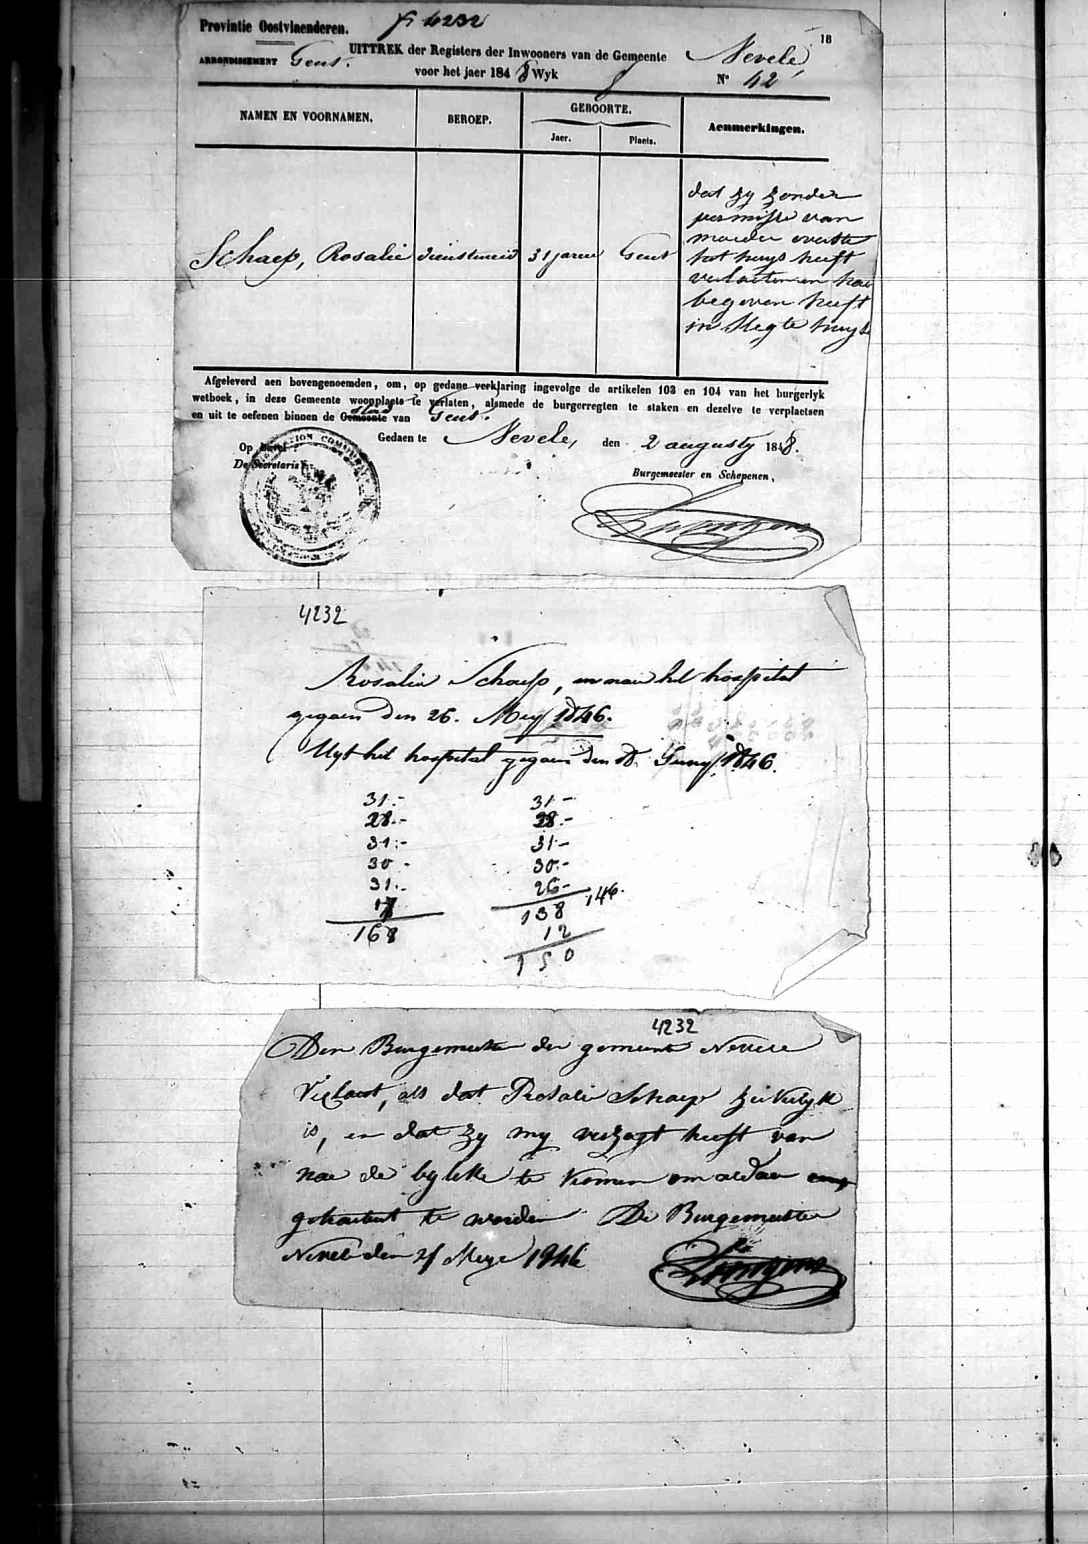 Provintie Oostvlaenderen.
4232
18
UITTREK der Registers der Inwooners van de Gemeente Nevele,
ARRONDISSEMENT Gent.
voor het jaer 1848 Wyk
N° 42
NAMEN EN VOORNAMEN.
BEROEP.
GEBOORTE.
Jaer.
Plaets.
Aenmerkingen.
Schaep, Rosalie
dienstmeid
31 jaren
Gent
dat zy zonder
permissie van
moeder overste
het huys heeft
verlaeten en haer
begeven heeft
in slegte huyse
Afgeleverd aen bovengenoemden, om, op gedane verklaring ingevolge de artikelen 103 en 104 van het burgerlyk
wetboek, in deze Gemeente woonplaets te verlaten, alsmede de burgerregten te staken en dezelve te verplaetsen
en uit te oefenen binnen de Gemeente stad van Gent.
Gedaen te Nevele, den 2 augusty 1848.
De Secretaris
Burgemeester en Schepenen,
4232
Rosalie Schaep, in het hospital
gegaen den 26. Mey 1846.
Uyt het hospital gegaen den 18. Juny 1846.
31.- 31-
28.- 28.-
31.- 31-
30- 30.-
31.- 26- 146.
17 138
168 12
150
4232
Den Burgemeester der gemeente Nevele
Verclaert, als dat Rosalie Schaep ziekelyk
is, en dat zy my verzogt heeft van
nae de byloke te komen om aldaer
getracteert te worden De Burgemeester
Nevele den 25 Meye 1846